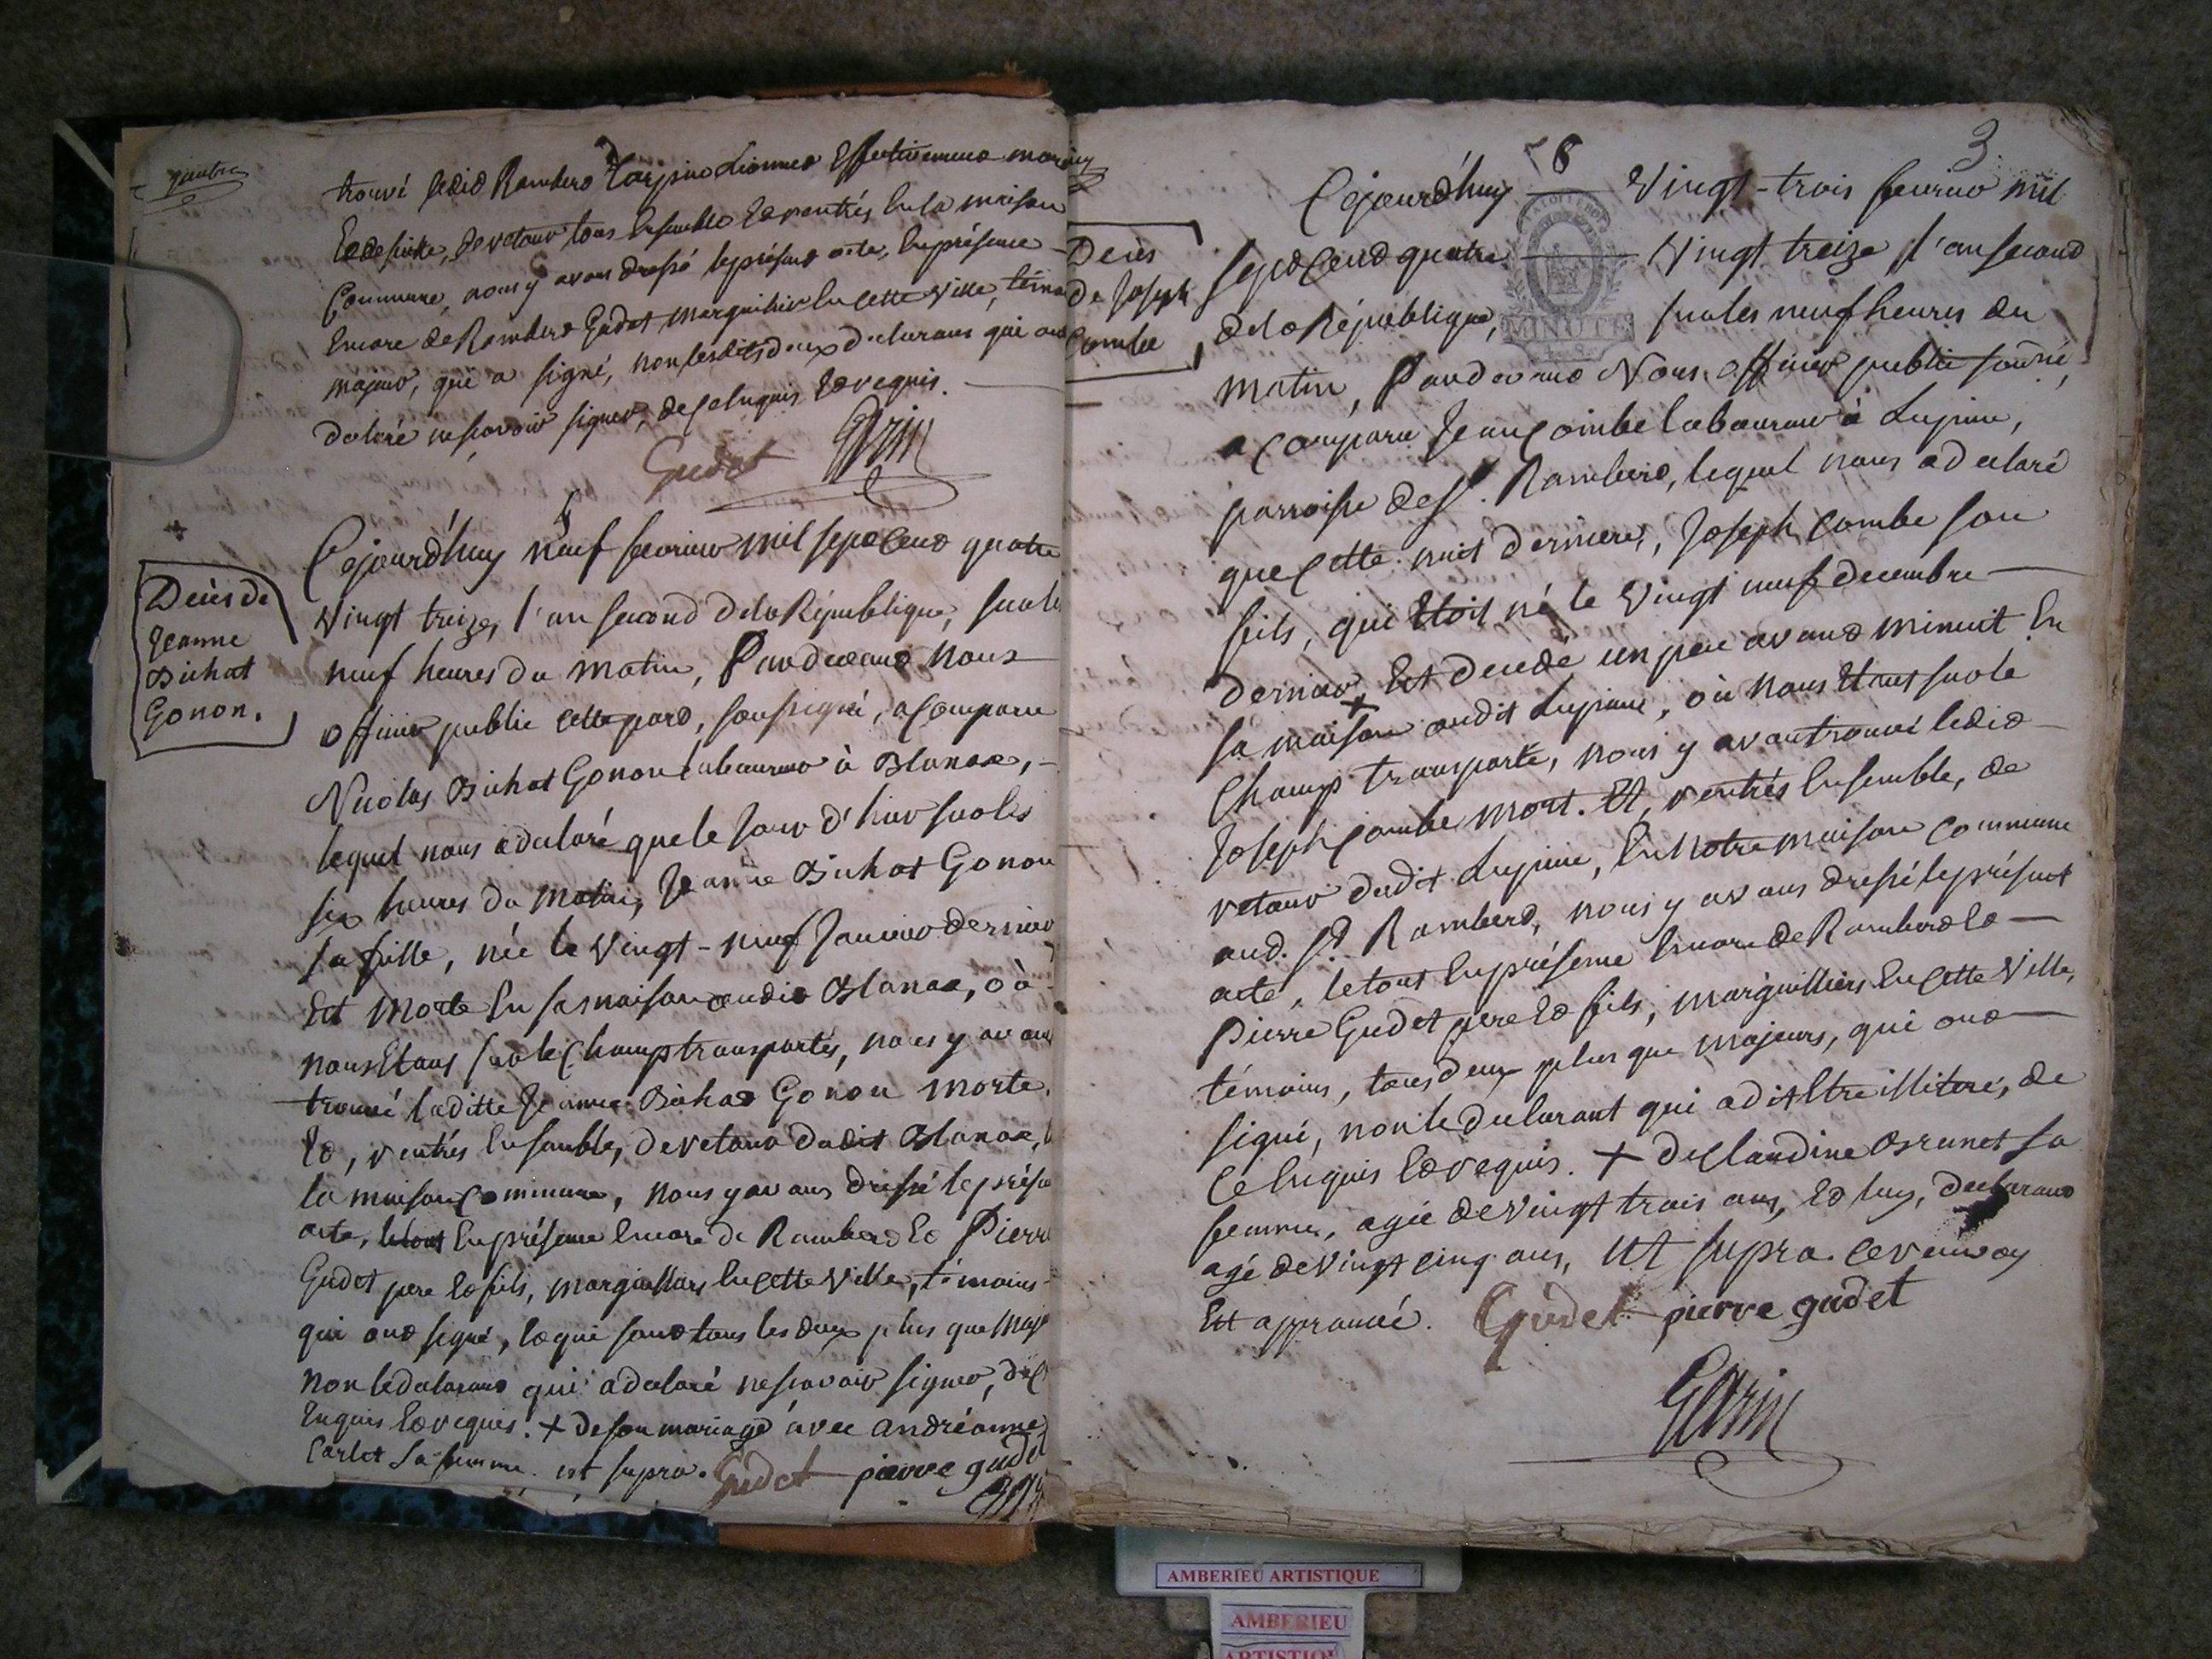 trouvé ledit Rambert Tarpin Lionnet Effectivement
Et de suitte, de retour tous Ensemble Et rentrés En la maison
Commune, nous y avons dressé le présent acte, En présence
Encore de Rambert Gudet marguillier En cette Ville, témoi
majeur, qui a signé, non lesdits deux declarans qui ont
declaré ne scavoir signer, de ce Enquis Et requis.
Gudet Garin
5
Decès de
Jeanne
Bichat
Gonon.
Cejourd'huy neuf fevrier mil sept Cent quatre
Vingt treize, l'an second de la République, sur les
neuf heures du matin, Pardevant Nous
officier public Cette part, soussigné, a Comparu
Nicolas Bichat Gonon laboureur à Blanaz,
lequel nous a declaré que le jour d'hier sur les
six heures du matin, Jeanne Bichat Gonon
sa fille, née le Vingt-neuf Janvier dernier
Est morte En sa maison audit Blanaz, où
nous Etans sur le Champ transportés, nous y avons
trouvé laditte Jeanne Bichat Gonon morte.
Et, rentrés Ensemble, de retour dudit Blanaz,
la maison Commune, nous y avons dressé le prése
acte, le tout En présence Encore de Rambert Et Pierre
Gudet pere Et fils, marguilliers En cette Ville, témoins
qui ont signé, Et qui sont tous les deux plus que Maje
non le declarant qui a declaré ne scavoir signer, de C
Enquis Et requis. + de son mariage avec andréanne
Carlet sa femme. ut supra. Gudet pierre gude
3
8
Decès
de Joseph
Combe
Cejourd'huy Vingt-trois fevrier mil
sept Cent quatre Vingt treize, l'an second
de la République, sur les neuf heures du
MINUTE
matin, Pardevant Nous officier public souss̃né,
a Comparu Jean Combe laboureur à Lupieu,
parroisse de St. Rambert, lequel nous a declaré
que Cette nuit derniere, Joseph Combe son
fils, qui Etoit né le Vingt neuf decembre
dernier, + Est decedé un peu avant minuit En
sa maison audit Lupieu, où Nous Etant sur le
Champ transporté, nous y avons trouvé ledit
Joseph Combe mort. Et, rentrés Ensemble, de
retour dudit Lupieu, En Notre maison Commune
aud. St. Rambert, nous y avons dressé le présent
acte, le tout En présence Encore de Rambert Et
Pierre Gudet pere Et fils, marguilliers En Cette Ville,
témoins, tous deux plus que majeurs, qui ont
signé, non le declarant qui a dit Etre illiteré, de
Ce Enquis Et requis. + de Claudine Brunet sa
femme, agée de Vingt trois ans, Et luy, declarant
agé de Vingt cinq ans, Ut supra. Ce renvoy
Est approuvé. Gudet pierre gudet
Garin
AMBERIEU ARTISTIQUE
AMBERIEU
ARTISTIQUE